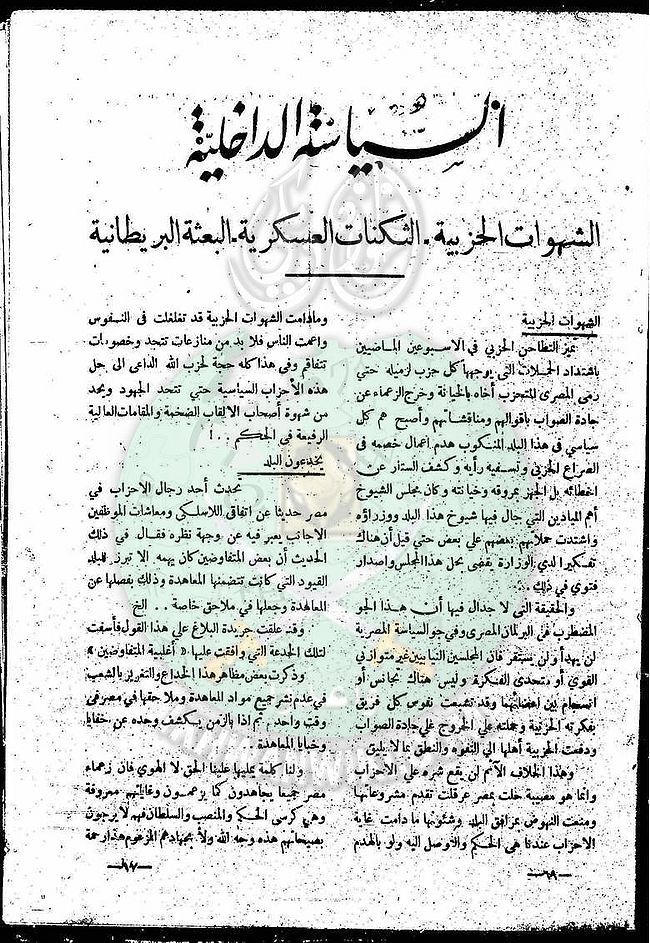 السياسة الداخلية
الشهوات الحزبية - الثكنات العسكرية - البعثة البريطانية
الشهوات الحزبية
تميز التطاحن الحزبي في الاسبوعين الماضيين
باشتداد الحملات التي يوجهها كل حزب لزميله حتي
رمى المصرى المتحزب أخاه بالخيانة وخرج الزعماء عن
جادة الصواب باقوالهم ومناقشاتهم وأصبح هم كل
سياسي في هذا البلد المنكوب هدم اعمال خصمه في
الصراع الحزبي وتسفيه رأيه وكشف الستار عن
اخطائه بل الجهر بمروقه وخيانته وكان مجلس الشيوخ
أهم الميادين التي جال فيها شيوخ هذا البلد ووزراؤه
واشتدت حملاتهم بعضهم علي بعض حتي قيل أن هناك
تفكيرا لدي الوزارة يقضى بحل هذا المجلس واصدار
فتوي في ذلك .
والحقيقة التي لا جدال فيها أن هذا الجو
المضطرب في البرلمان المصرى وفي جو السياسة المصرية
لن يهدأ ولن يستقر فان المجلسين النيابيين غير متوازني
القوي أو متحدى الفكرة وليس هناك تجانس أو
انسجام بين اعضائهما وقد تشبعت نفوس كل فريق
بفكرته الحزبية وحملته علي الخروج علي جادة الصواب
ودفعت الحزبية أهلها الي التفوه والنطق بما لا يليق
وهذا الخلاف الآثم لن يقع شره علي الاحزاب
وانما هو مصيبة حلت بمصر عرقلت تقدم مشروعاتها
ومنعت النهوض بمرافق البلد وشئونها ما دامت غاية
الاحزاب عندنا هي الحكم والتوصل اليه ولو بالهدم
ـ ٦٨ ـ
ومادامت الشهوات الحزبية قد تغلغلت في النفوس
واعمت الناس فلا بد من منازعات تتجدد وخصومات
تتفاقم وفى هذا كله حجة لحزب الله الداعى الى حل
هذه الأحزاب السياسية حتي تتحد الجهود ويحد
من شهوة أصحاب الالقاب الضخمة والمقامات العالية
الرفيعة في الحكم . . !
يخدعون البلد
تحدث أحد رجال الاحزاب في
مصر حديثا عن اتفاقي اللاسلكي ومعاشات الموظفين
الاجانب يعبر فيه عن وجهة نظره فقال في ذلك
الحديث أن بعض المتفاوضين كان يهمه الا تبرز للبلد
القيود التي كانت تتضمنها المعاهدة وذلك بفصلها عن
المعاهدة وجعلها في ملاحق خاصة . . الخ
وقد علقت جريدة البلاغ علي هذا القول فأسفت
لتلك الخدعة التي وافقت عليها « أغلبية المتفاوضين »
وذكرت بعض مظاهر هذا الخداع والتغرير بالشعب
في عدم نشر جميع مواد المعاهدة وملاحقها في مصر في
وقت واحد ، ثم اذا بالزمن يكشف وحده عن خفايا
وخبايا المعاهدة . .
ولنا كلمة يمليها علينا الحق لا الهوي فان زعماء
مصر جميعا يجاهدون كما يزعمون وغاياتهم معروفة
وهي كرسى الحكم والمنصب والسلطان فهم لا يرجون
بصيحاتهم هذه وجه الله ولا بجهادهم المزعوم هذا رحمة
ـ ٦٧ ـ